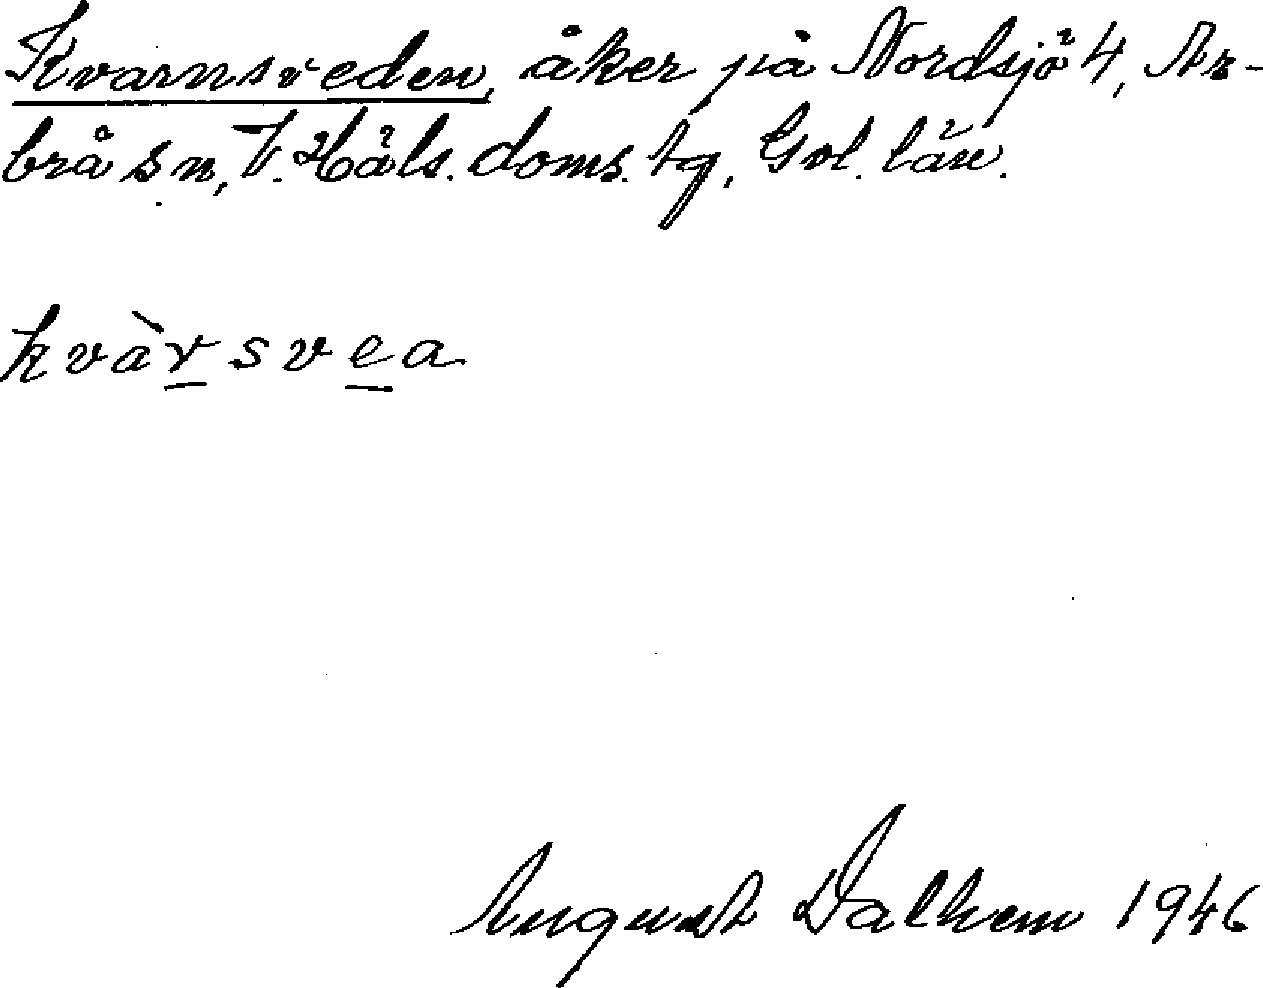 Kvarnsveden, åker på Nordsjö 4, Ar-
brå sn, V. Häls. doms. tg, Gvl. län.
kvàrsvea
August Dalhem 1946